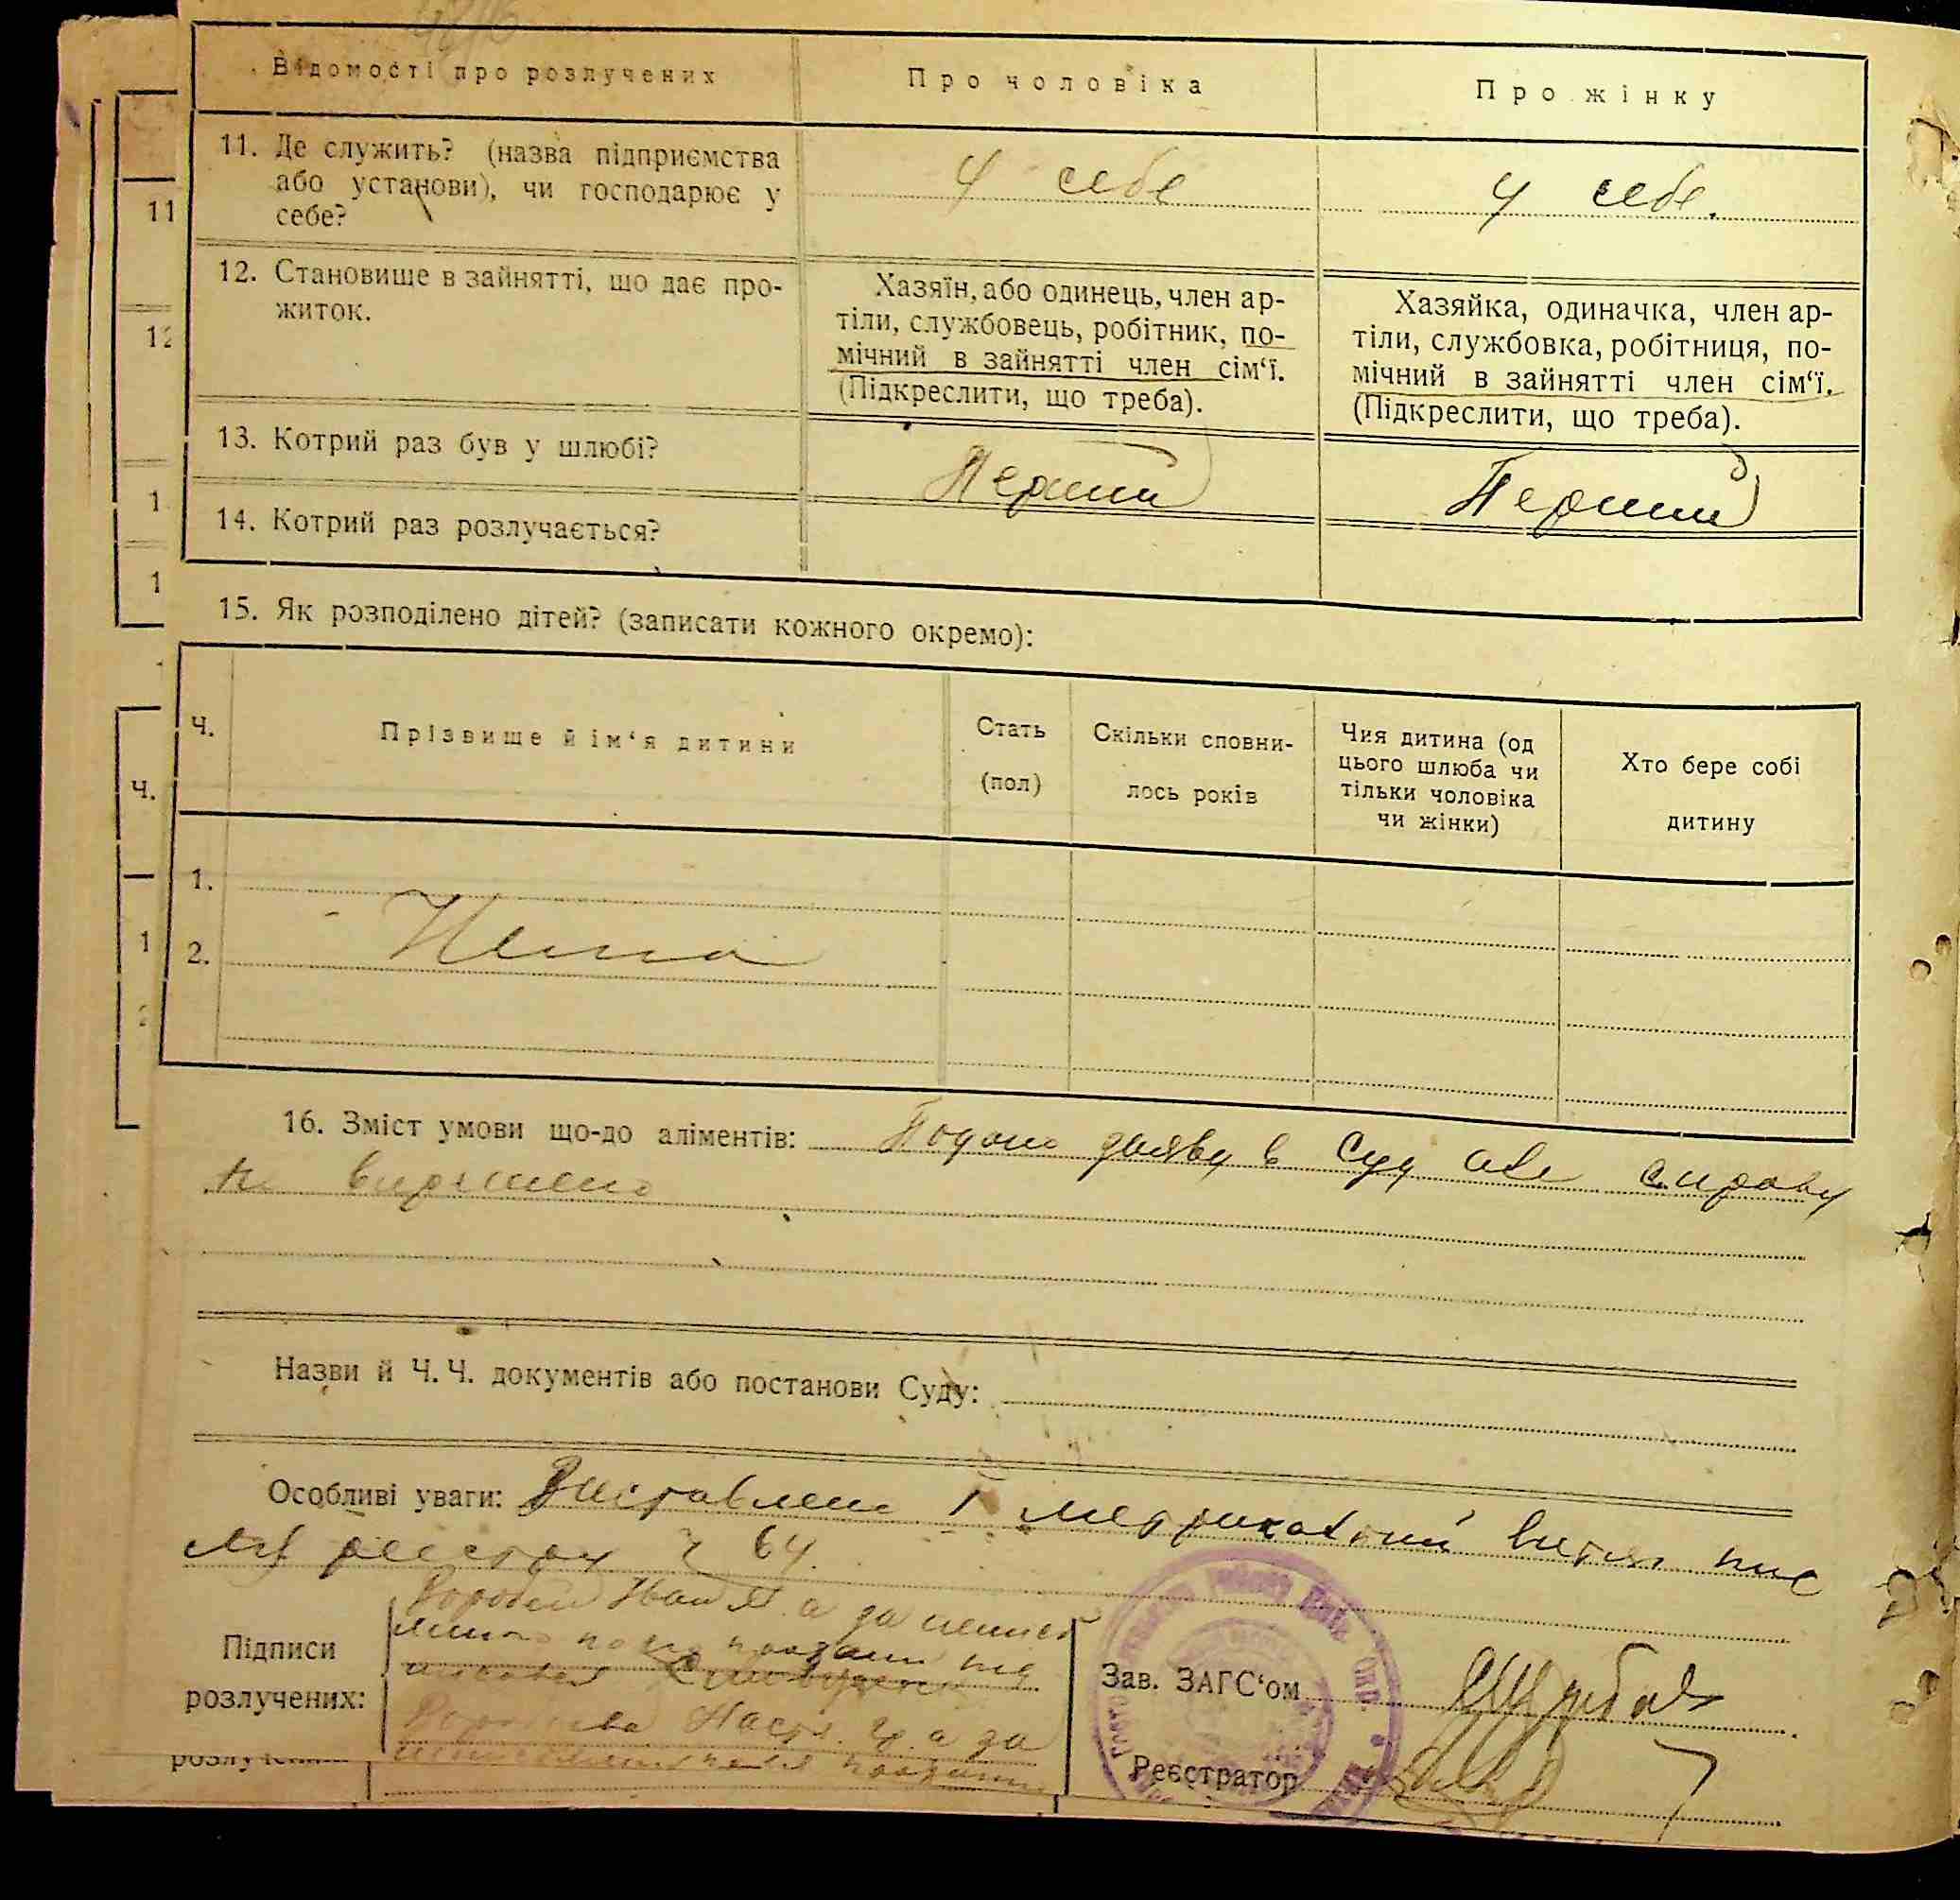 Відомості про розлучених
Про чоловіка
Про жінку
11. Де служить? (назва підприємства
або установи), чи господарює у
себе?
У себе
У себе.
12. Становище в зайнятті, що дає про-
житок.
Хазяїн, або одинець, член ар-
тіли, службовець, робітник, по-
мічний в зайнятті член сім‘ї.
(Підкреслити, що треба).
Хазяйка, одиначка, член ар-
тіли, службовка, робітниця, по-
мічний в зайнятті член сім‘ї.
(Підкреслити, що треба).
13. Котрий раз був у шлюбі?
Перший
Перший
14. Котрий раз розлучається?
15. Як розподілено дітей? (записати кожного окремо):
Ч.
Прізвище й ім‘я дитини
Стать
(пол)
Скільки сповни-
лось років
Чия дитина (од
цього шлюба чи
тільки чоловіка
чи жінки)
Хто бере собі
дитину
1.
2.
Нема
16. Зміст умови що-до аліментів: Подано заяву в Суд але справу
не вирішено
Назви й Ч. Ч. документів або постанови Суду:
Особливі уваги: Виставлено 1 метрикальний витяг
реєстру 64.
Підписи
розлучених:
Воробей Іван а за
Настя а за
Зав. ЗАГС‘ом
Реєстратор
11
12
1
1
Ч.
1